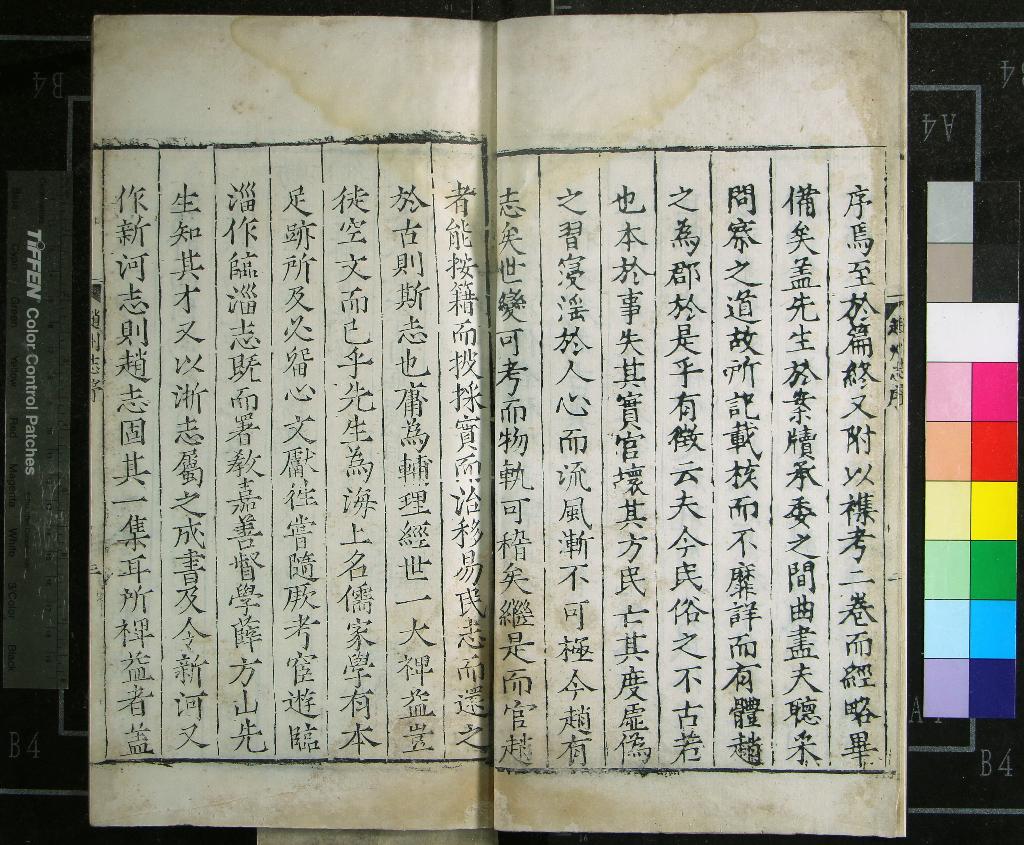 序焉至於篇終又附以襍考二卷而經略畢
備矣盖先生於案牘承委之間曲盡夫聽采
問察之道故所記載核而不靡詳而有體趙
之為郡於是乎有徵云夫今民俗之不古若
也本於事失其實官壞其方民亡其度虛偽
之習寖滛於人心而流風漸不可極今趙有
志矣世變可考而物軌可稽矣繼是而官趙
者能按籍而披採實而治移易民志而還之
於古則斯志也甭為輔理經世一大裨益豈
徒空文而已乎先生為海上名儒家學有本
足跡所及必畱心文獻徃嘗隨厥考宦遊臨
淄作臨淄志既而署教嘉善督學薛方山先
生知其才又以浙志屬之成書及令新河又
作新河志則趙志固其一集耳所裨益者盖
趙州志序
二
趙州志序
三
TIFFEN Color Control Patches
Green
Yellow
Red
Magenta
White
3/Color
Black
B4
A4
B4
B4
A4
B4